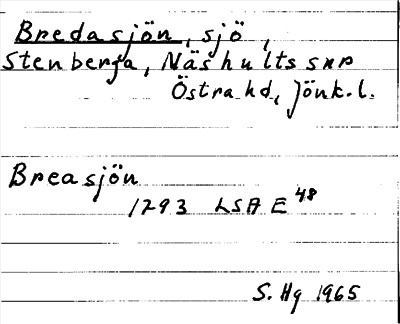 Bredasjön, sjö,
Stenberga, Näshults snr
Östra hd, Jönk. l.
Breasjön
1793 LSA E 48
S. Hg 1965